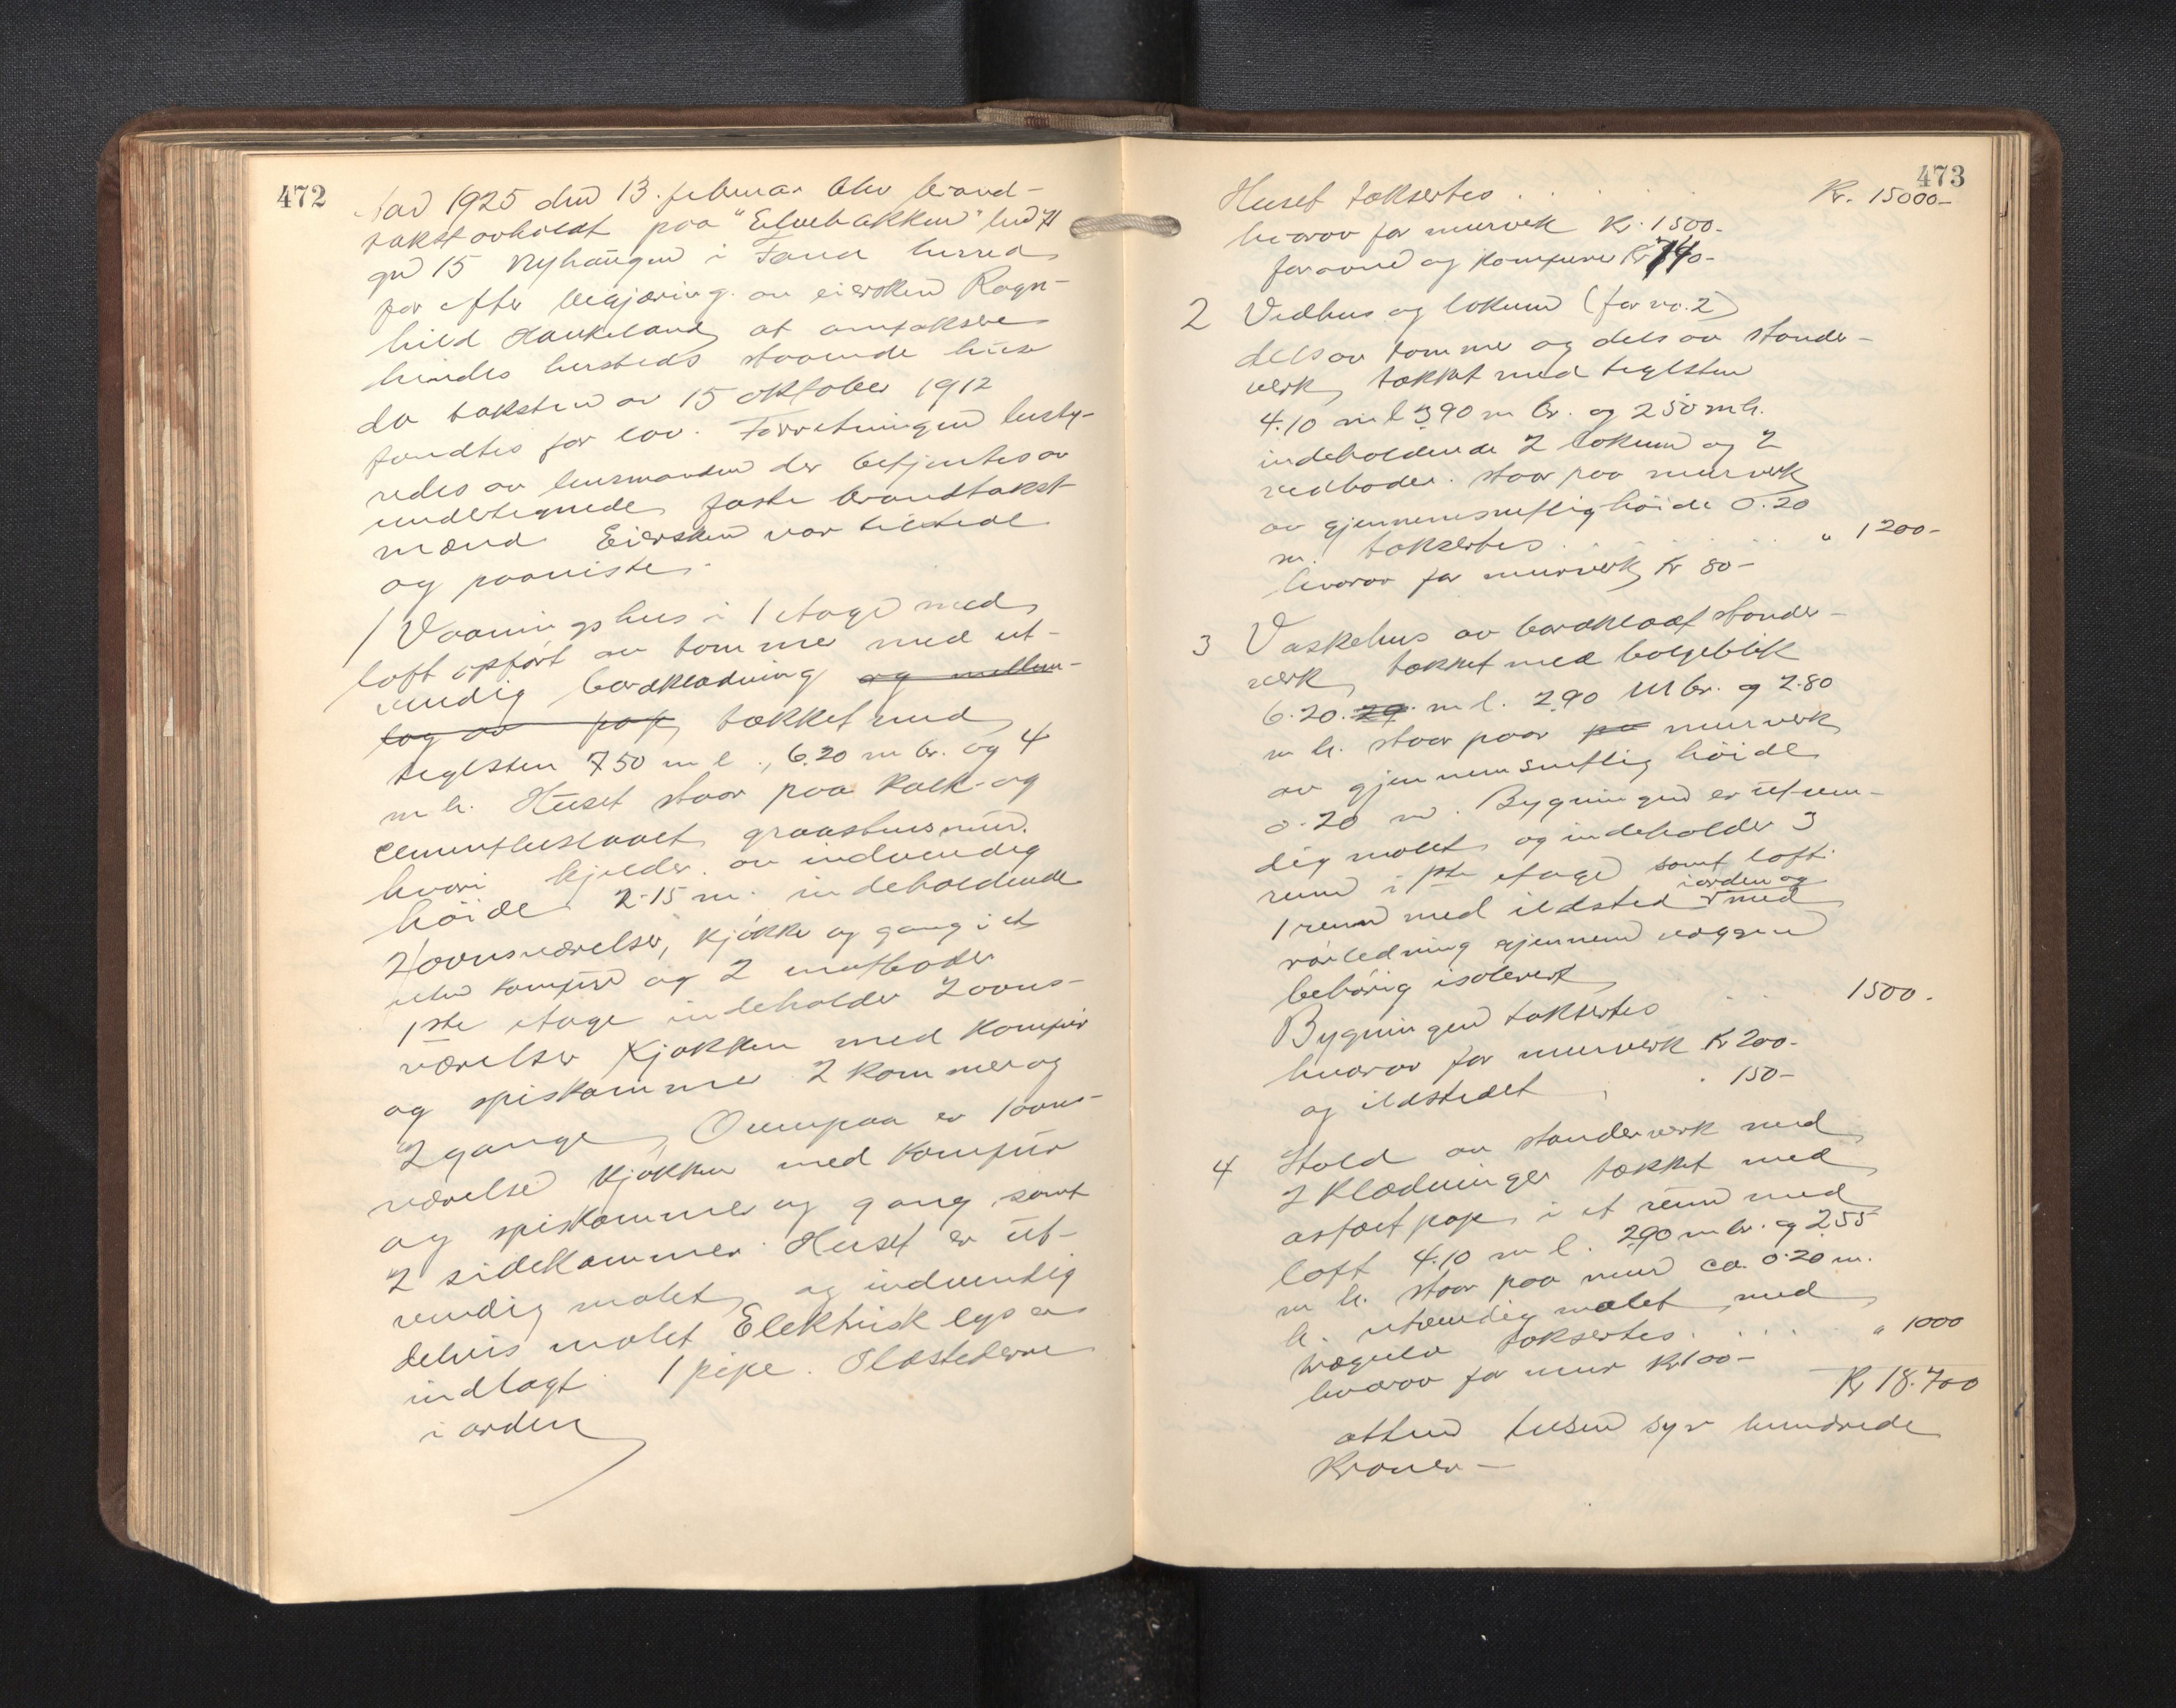 472
Aar 1925 den 13. februar blev brand-
takst avholdt paa "Elvebakken" bnr 71
gnr 15 Nyhaugen i Fana herred
for efter begjæring av eiersken Ragn-
hild Haukeland at omtaksere
hendes hersteds staaende huse
da taksten av 15 oktober 1912
fandtes for lav. Forretningen besty-
redes av lensmanden der betjentes av
undertegnede faste brandtakst
mænd Eiersken var tilstede
og paaviste.
1 Vaaningshus i 1 etage med
loft opført av tømmer med ut-
vendig bordklædning og mellem-
lag av pap, tækket med
teglsten 7.50 m l., 6.20 m br. og 4
m h. Huset staar paa kalk- og
cementbeslaaet graastensmur.
hvori kjelder av indvendig
høide 2.15 m. indeholdende
2 ovnsværelser, kjøkken og gang i et
uten komfur og 2 matboder
1ste etage indeholder 2 ovns-
værelser kjøkken med komfur
og spiskammer 2 kammer og
2 gange, Ovenpaa er 1 ovns-
værelse kjøkken med komfur
og spiskammer og gang samt
2 sidekammer. Huset er ut-
vendig malet, og indvendig
delvis malet Elektrisk lys er
indlagt. 1 pipe. Ildstederne
i orden
473
Huset taksertes . . . . Kr. 15000-
hvorav for murverk Kr. 1500-
for ovne og komfurer Kr 740-
2 Vedhus og lokum (før no. 2)
dels av tømmer og dels av stender-
verk, tækket med teglsten
4.10 m l 3.90 m br. og 2.50 m h.
indeholdende 2 lokum og 2
vedboder. staar paa murverk
av gjennemsnitlig høide 0.20
m. taksertes . . . . " 1200-
hvorav for murverk Kr 80-
3 Vaskehus av bordklædt stender-
verk, tækket med bølgeblik
6.20. 29 m l. 2.90 m br. og 2.80
m h. staar paa pa murverk
av gjennemsnitlig høide
0.20 m. Bygningen er utven-
dig malet, og indeholder 3
rum i 1ste etage samt loft.
i orden og
1 rum med ildsted med
rørledning gjennem væggen
behørig isolerert,
Bygningen taksertes . . 1500.
hvorav for murverk Kr 200-
og ildstedet . 150-
4 Stald av stenderverk med
2 klædninger tækket med
asfaltpap, i et rum med
loft 4.10 m l. 2.90 m br. og 2.55
m h. staar paa mur ca. 0.20 m.
h. utvendig malet med
taksertes . . . . " 1000
hvorav for mur Kr 100-
Kr 18.700
atten tusen syv hundrede
Kroner-